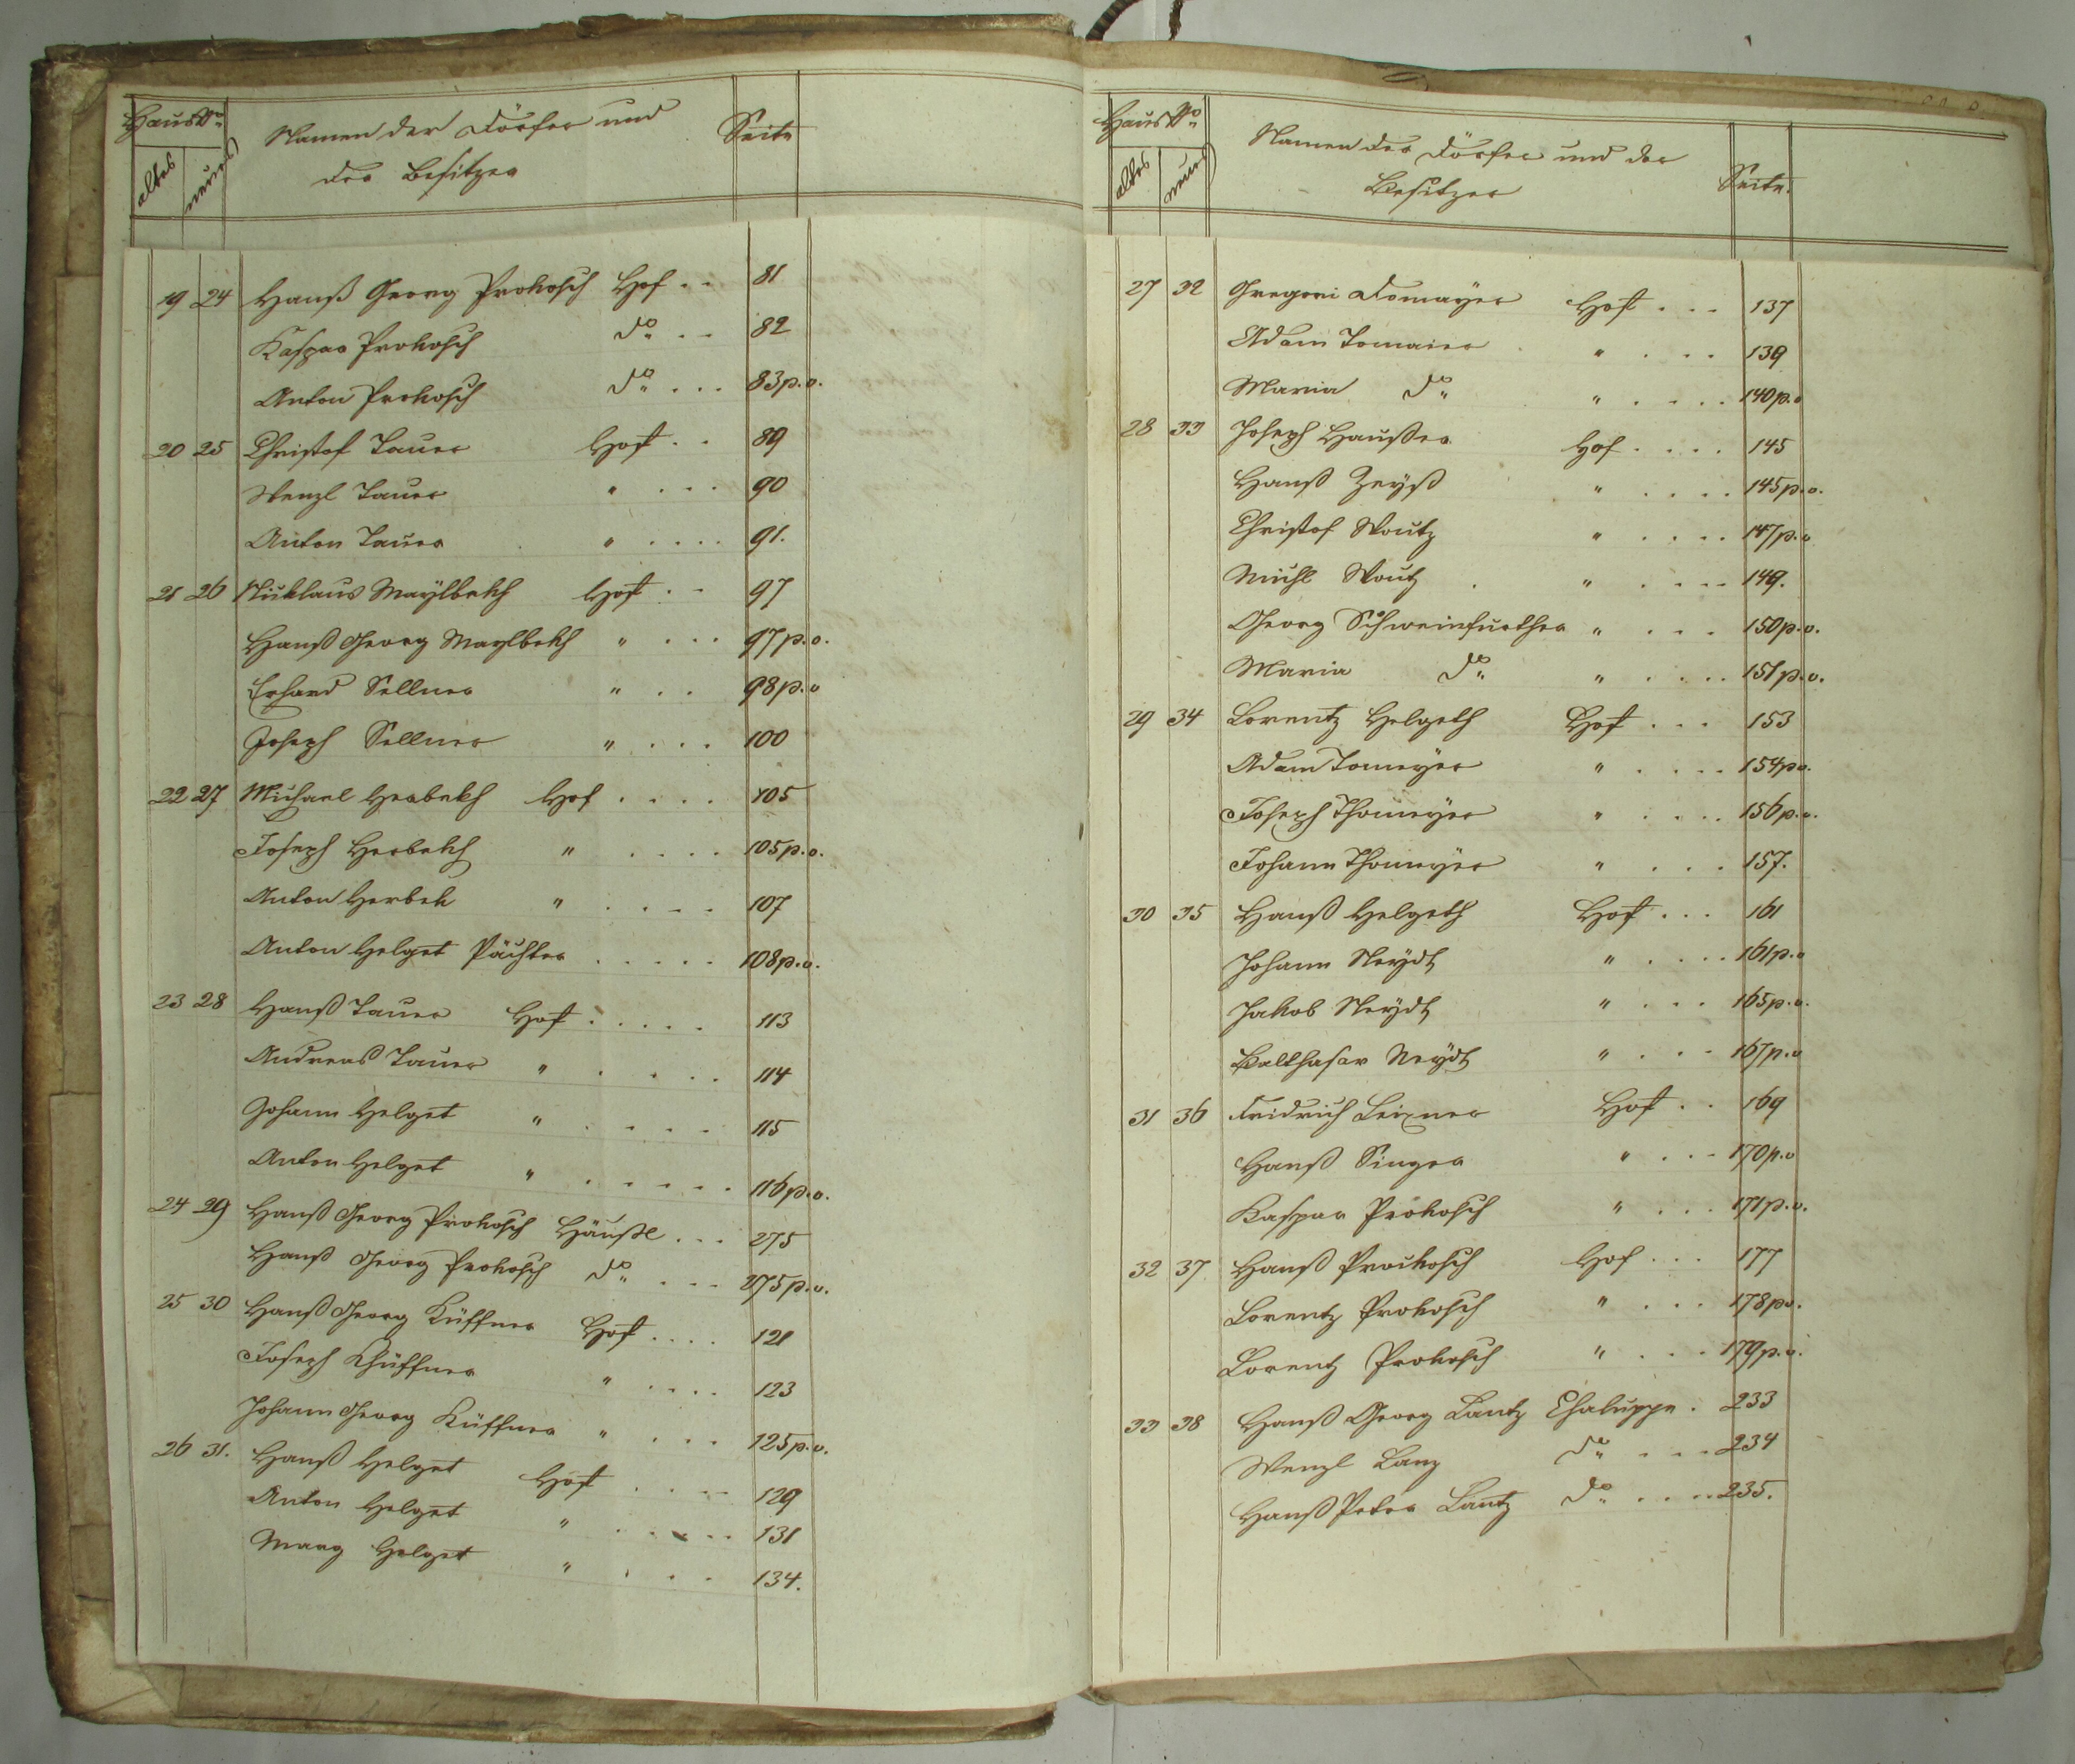 Haus No
altes neues
Namen der Dörfer und
der Besitzer
Seite
19 24 Hanß Georg Prokosch Hof . . 81
Kaspar Prokosch do . . 82
Anton Prokosch do . . . 83 p. v.
20 25 Christof Tauer Hof . . 89
Wenzl Tauer " . . . 90
Anton Tauer " . . . . 91.
21 26 Nicklaus Maylbekh Hof . . 97
Hanß Georg Maylbekh " . . . 97 p. v.
Erhard Sellner " . . 98 p. v
Joseph Sellner " . . . 100
22 27 Michael Herbekh Hof . . . . 105
Joseph Herbekh " . . . . 105 p. v.
Anton Herbek " . . . . 107
Anton Helget Pächter . . . . . 108 p. v.
23 28 Hanß Tauer Hof . . . . . 113
Andreas Tauer " . . . . 114
Johann Helget " . . . . 115
Anton Helget " . . . . . 116 p. v.
24 29 Hanß Georg Prokosch Häußl . . . 275
Hanß Georg Prokosch do . . . 275 p. v.
25 30 Hanß Georg Küffner Hof . . . . 121
Joseph Khüffner " . . . . 123
Johann Georg Küffner " . . . 125 p. v.
26 31. Hanß Helget Hof . . . . 129
Anton Helget " . . . . . 131
Marg Helget " . . . 134.
Haus No
altes neues
Namen der Dörfer und der
Besitzer
Seite.
27 32 Gregori Domayer Hof . . . 137
Adam Tomaier " . . . 139
Maria do " . . . . 140 p. v
28 33 Joseph Haußer Hof . . . . 145
Hanß Zeyß " . . . . 145 p. v.
Christof Woutz " . . . . 147 p. v
Michl Woutz " . . . . 149.
Georg Schweinfurther " . . . 150 p. v.
Maria do " . . . . 151 p. v.
29 34 Lorentz Helgeth Hof . . . 153
Adam Tomeyer " . . . . 154 p v.
Joseph Thomeyer " . . . . 156 p. v.
Johann Thomeyer " . . . 157.
30 35 Hanß Helgeth Hof . . . 161
Johann Neydt " . . . . 161 p. v
Jakob Neydt " . . . 165 p. v.
Balthasar Neydt " . . . 167 p. v
31 36 Fridrich Leixner Hof . . 169
Hanß Singer " . . . 170 p. v
Kaspar Prokosch " . . . 171 p. v.
32 37 Hanß Prockosch Hof . . . 177
Lorentz Prokosch " . . . 178 p v.
Lorentz Prokosch " . . . 179 p. v.
33 38 Hanß Georg Lantz Chaluppe . 233
Wenzl Lanz do . . . 234
Hanß Peter Lantz do . . . . 235.